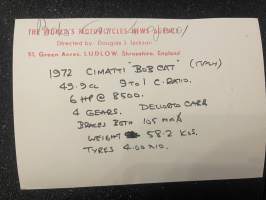 THE WORLD'S MOTORCYCLES NEWS AGENCY
Directed by: Douglas J. Jackson
51, Green Acres, LUDLOW, Shropshire, England
1972 CIMATTI "BOB CAT" (ITALY)
49.9cc 9 TO 1 C. RATIO.
6 HP @ 8500.
4 GEARS. DELLORTO CARB
BRAKES BOTH 105 m/m
WEIGHT 58.2 KGS.
TYRES 4.00 x 10.